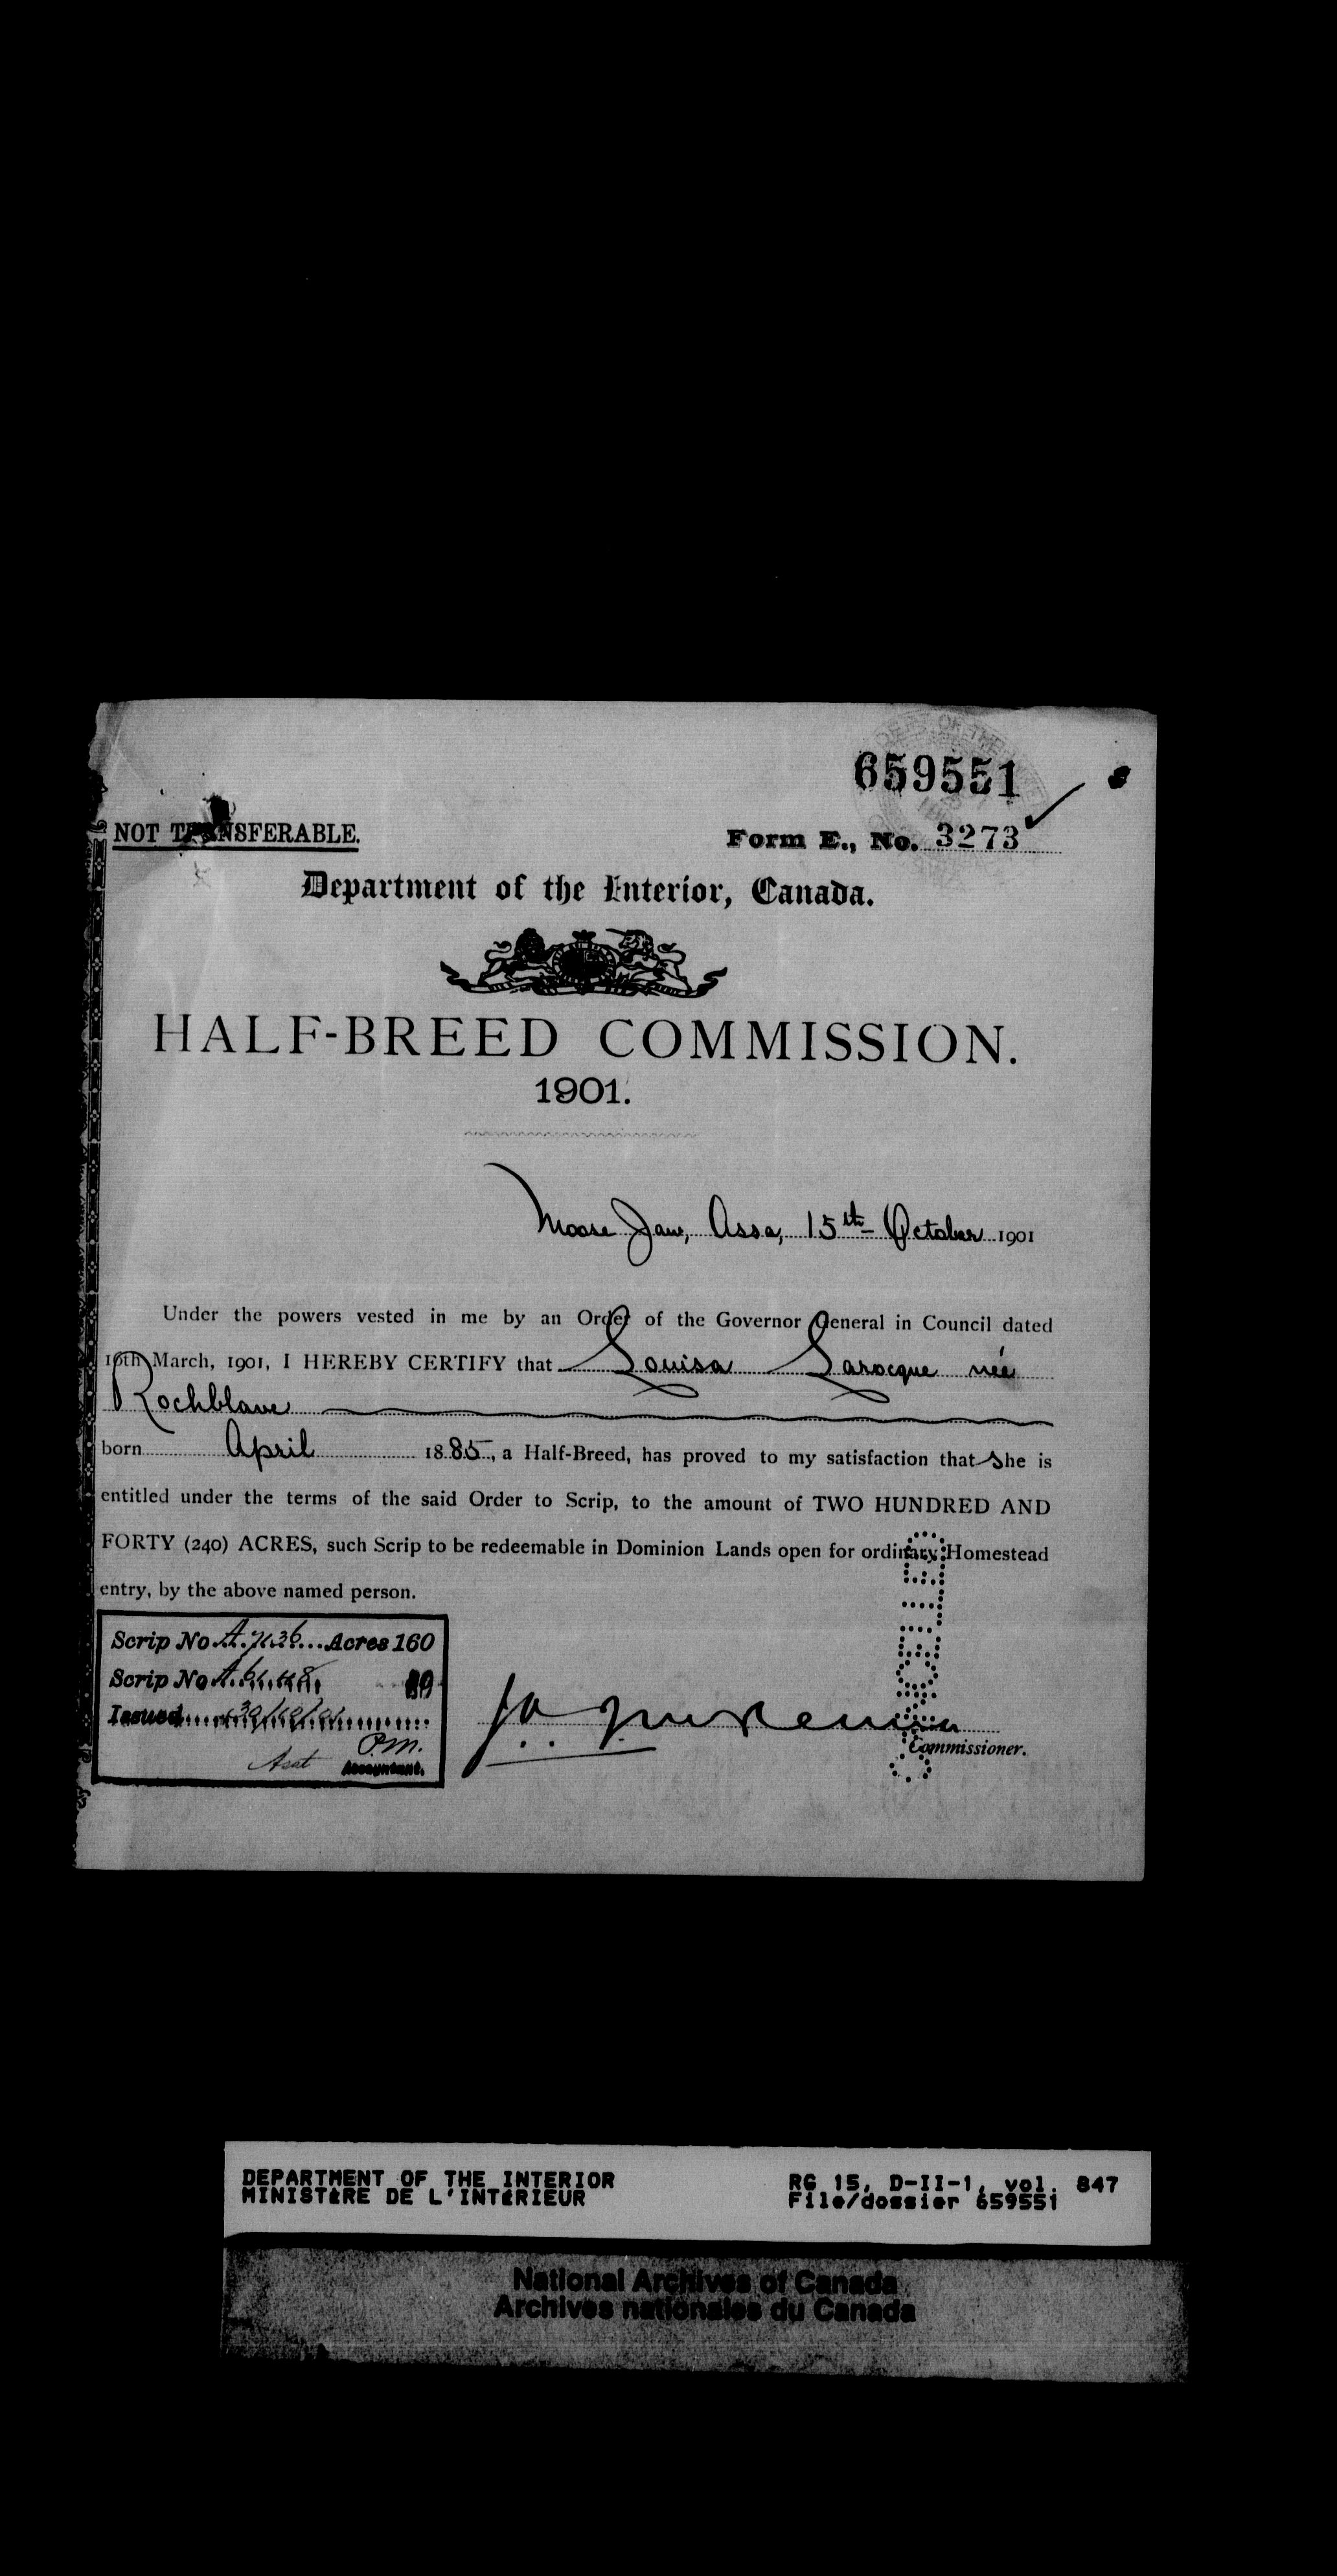 659551
NOT TRANSFERABLE.
Form E., No. 3273
Department of the Interior, Canada.
HALF-BREED COMMISSION.
1901.
Moose Jaw, Assa, 15th October 1901
Under the powers vested in me by an Order of the Governor General in Council dated
16th March, 1901, I HEREBY CERTIFY that Louisa Larocque née
Rochblave
born April 1885, a Half-Breed, has proved to my satisfaction that she is
entitled under the terms of the said Order to Scrip, to the amount of TWO HUNDRED AND
FORTY (240) ACRES, such Scrip to be redeemable in Dominion Lands open for ordinary Homestead
entry, by the above named person.
Scrip No. Acres 160
Scrip No. 80
Issued
P.M.
Asst Accountant.
Commissioner.
DEPARTMENT OF THE INTERIOR
MINISTÈRE DE L'INTÉRIEUR
RG 15, D-II-1, vol. 847
File/dossier 659551
National Archives of Canada
Archives nationales du Canada